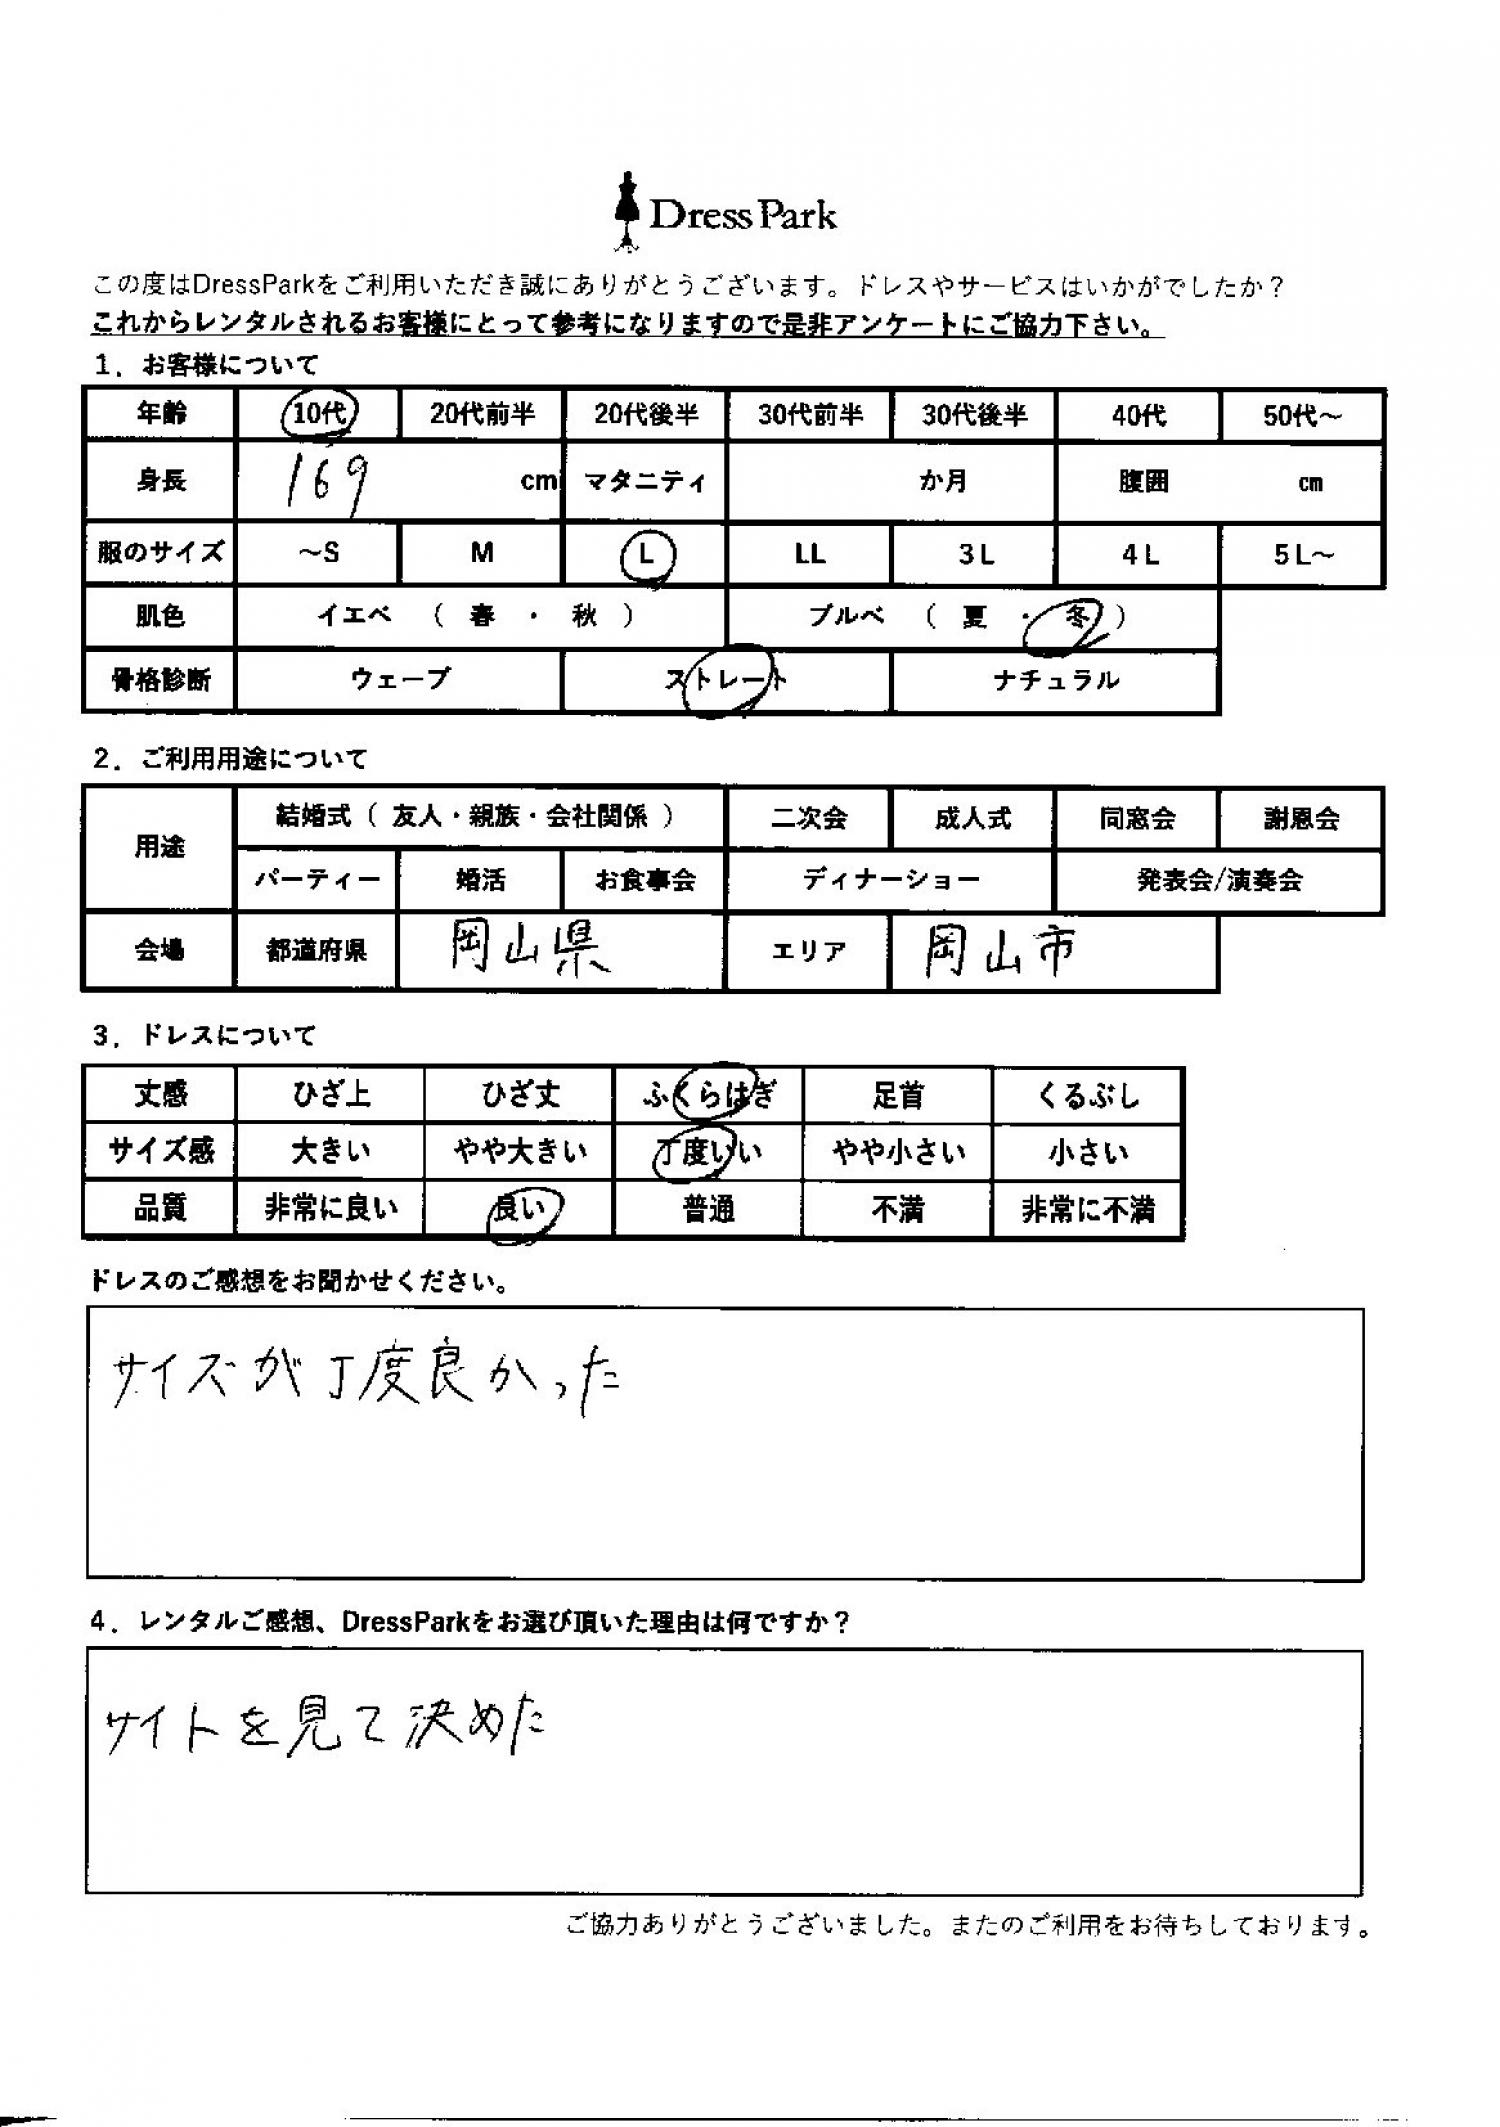 Dress Park
この度はDressParkをご利用いただき誠にありがとうございます。ドレスやサービスはいかがでしたか？
これからレンタルされるお客様にとって参考になりますので是非アンケートにご協力下さい。
1．お客様について
年齢 10代 20代前半 20代後半 30代前半 30代後半 40代 50代～
身長 169 cm マタニティ か月 腹囲 cm
服のサイズ ～S M L LL 3L 4L 5L～
肌色 イエベ （ 春 ・ 秋 ） ブルベ （ 夏 ・ 冬 ）
骨格診断 ウェーブ ストレート ナチュラル
2．ご利用用途について
用途 結婚式（ 友人・親族・会社関係 ） 二次会 成人式 同窓会 謝恩会
パーティー 婚活 お食事会 ディナーショー 発表会/演奏会
会場 都道府県 岡山県 エリア 岡山市
3．ドレスについて
丈感 ひざ上 ひざ丈 ふくらはぎ 足首 くるぶし
サイズ感 大きい やや大きい 丁度いい やや小さい 小さい
品質 非常に良い 良い 普通 不満 非常に不満
ドレスのご感想をお聞かせください。
サイズが丁度良かった
4．レンタルご感想、DressParkをお選び頂いた理由は何ですか？
サイトを見て決めた
ご協力ありがとうございました。またのご利用をお待ちしております。